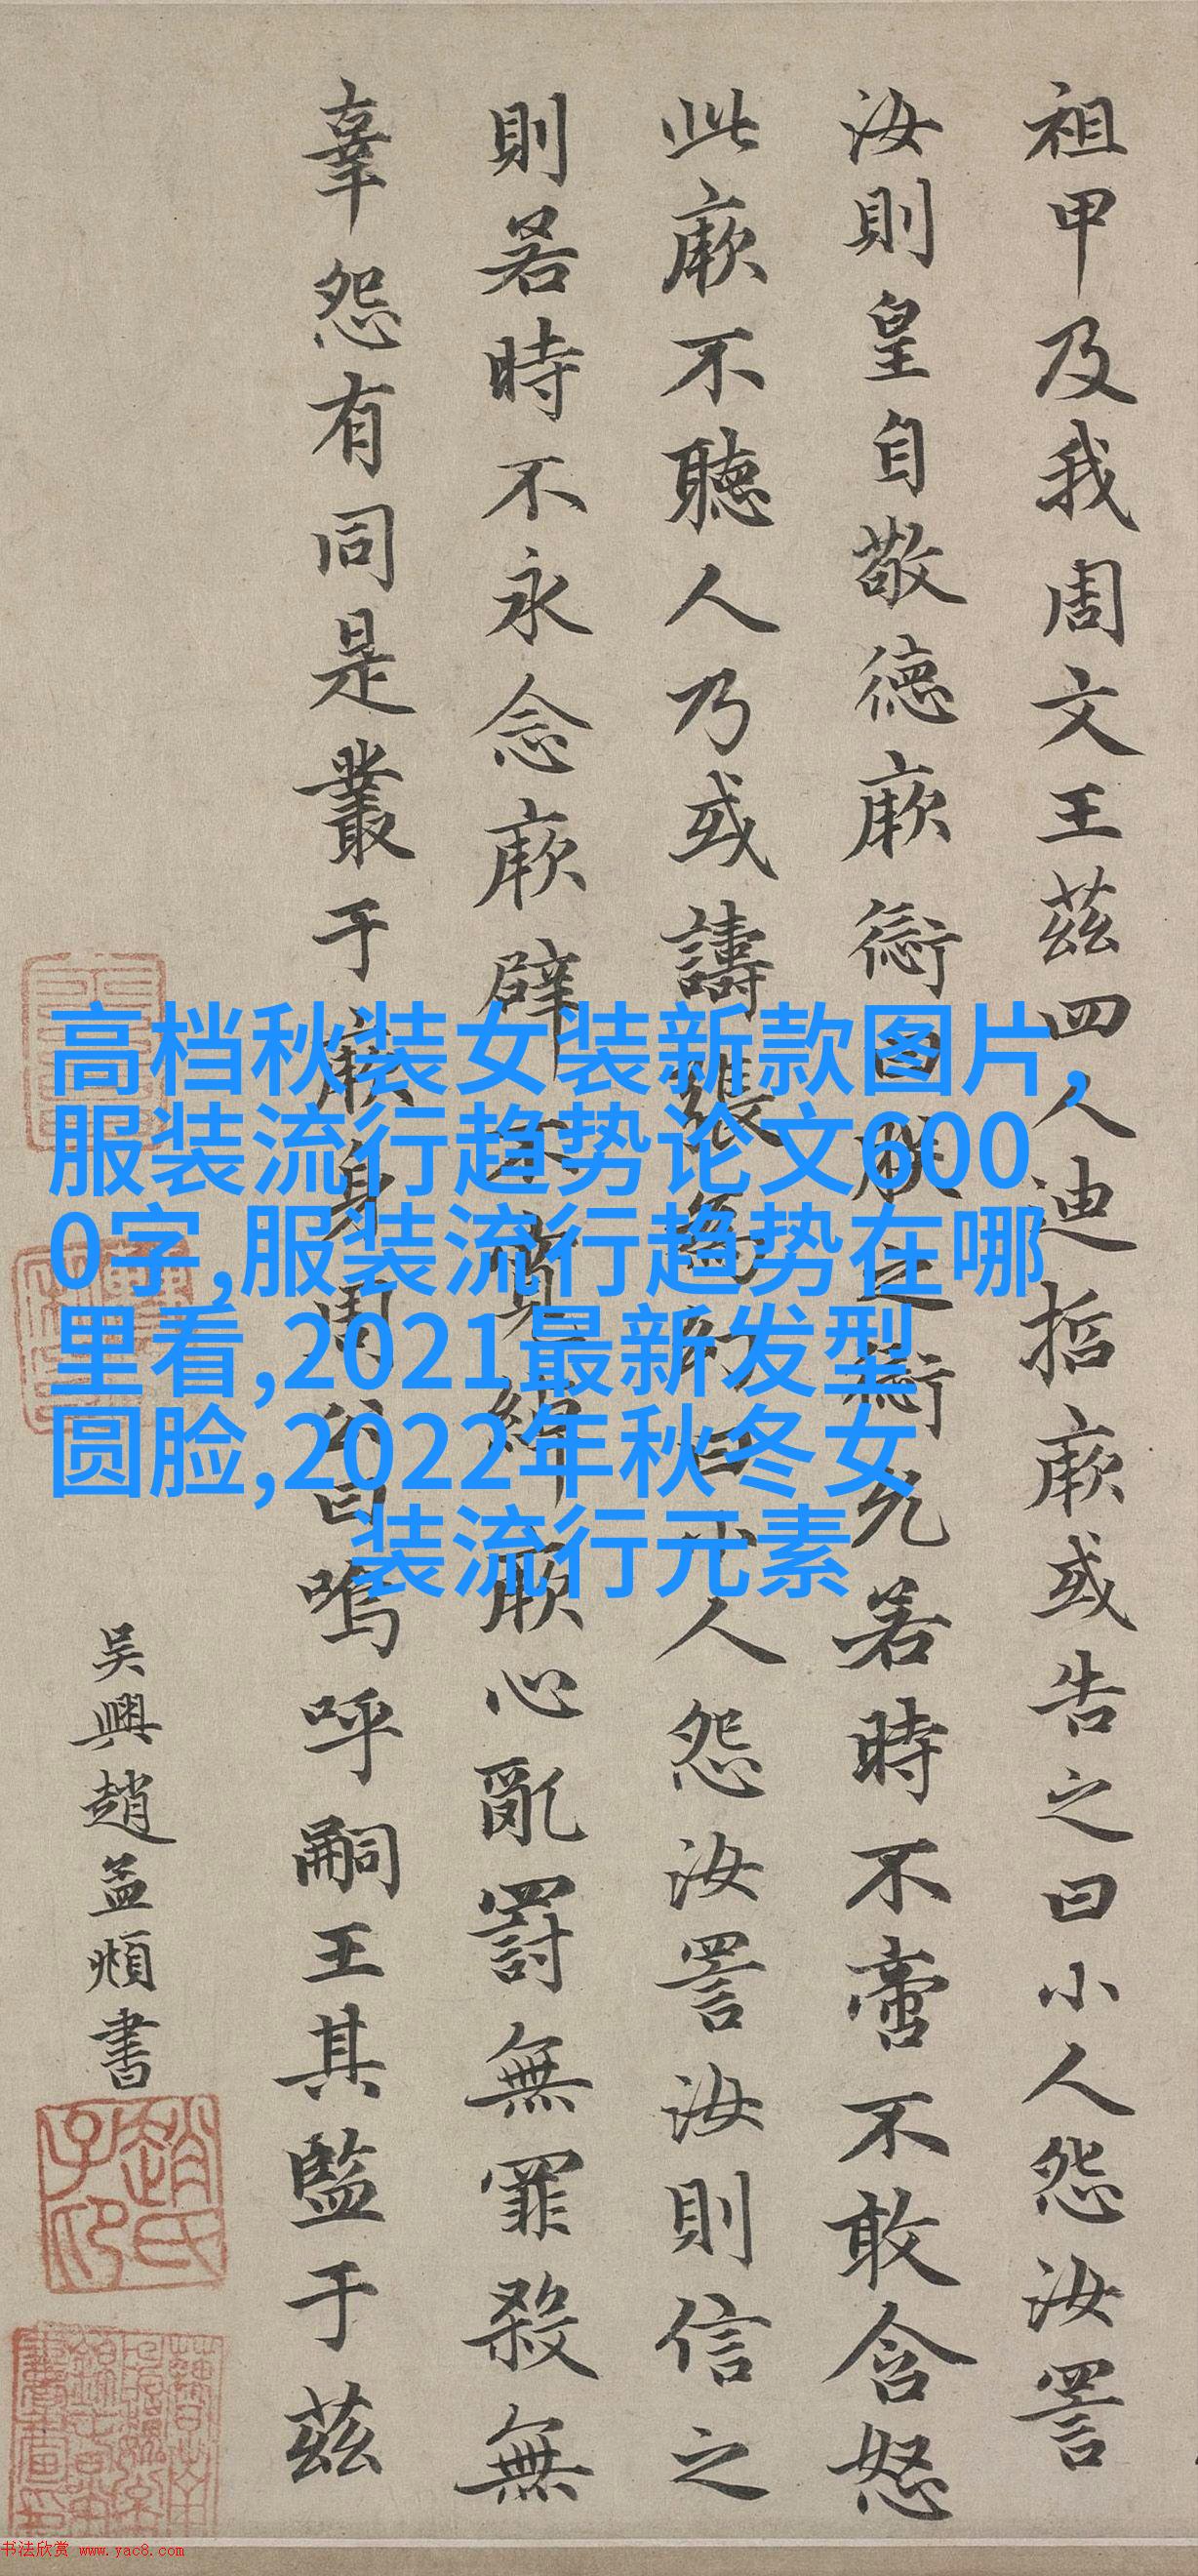 祖甲及我周文王茲四人迪哲厥或告之曰小人怨汝詈
汝則皇自敬德厥愆曰朕之愆允若時不啻不敢含怒
此厥不聽人乃或譸張為幻曰小人怨汝詈汝則信之
則若時不永念厥辟不寬綽厥心亂罰無罪殺無
辜怨有同是叢于厥身周公曰嗚呼嗣王其監于茲
吴興趙孟頫書
趙氏子昂
高档秋装女装新款图片,
服装流行趋势论文600
0字,服装流行趋势在哪
里看,2021最新发型
圆脸,2022年秋冬女
装流行元素
书法欣赏 www.yac8.com